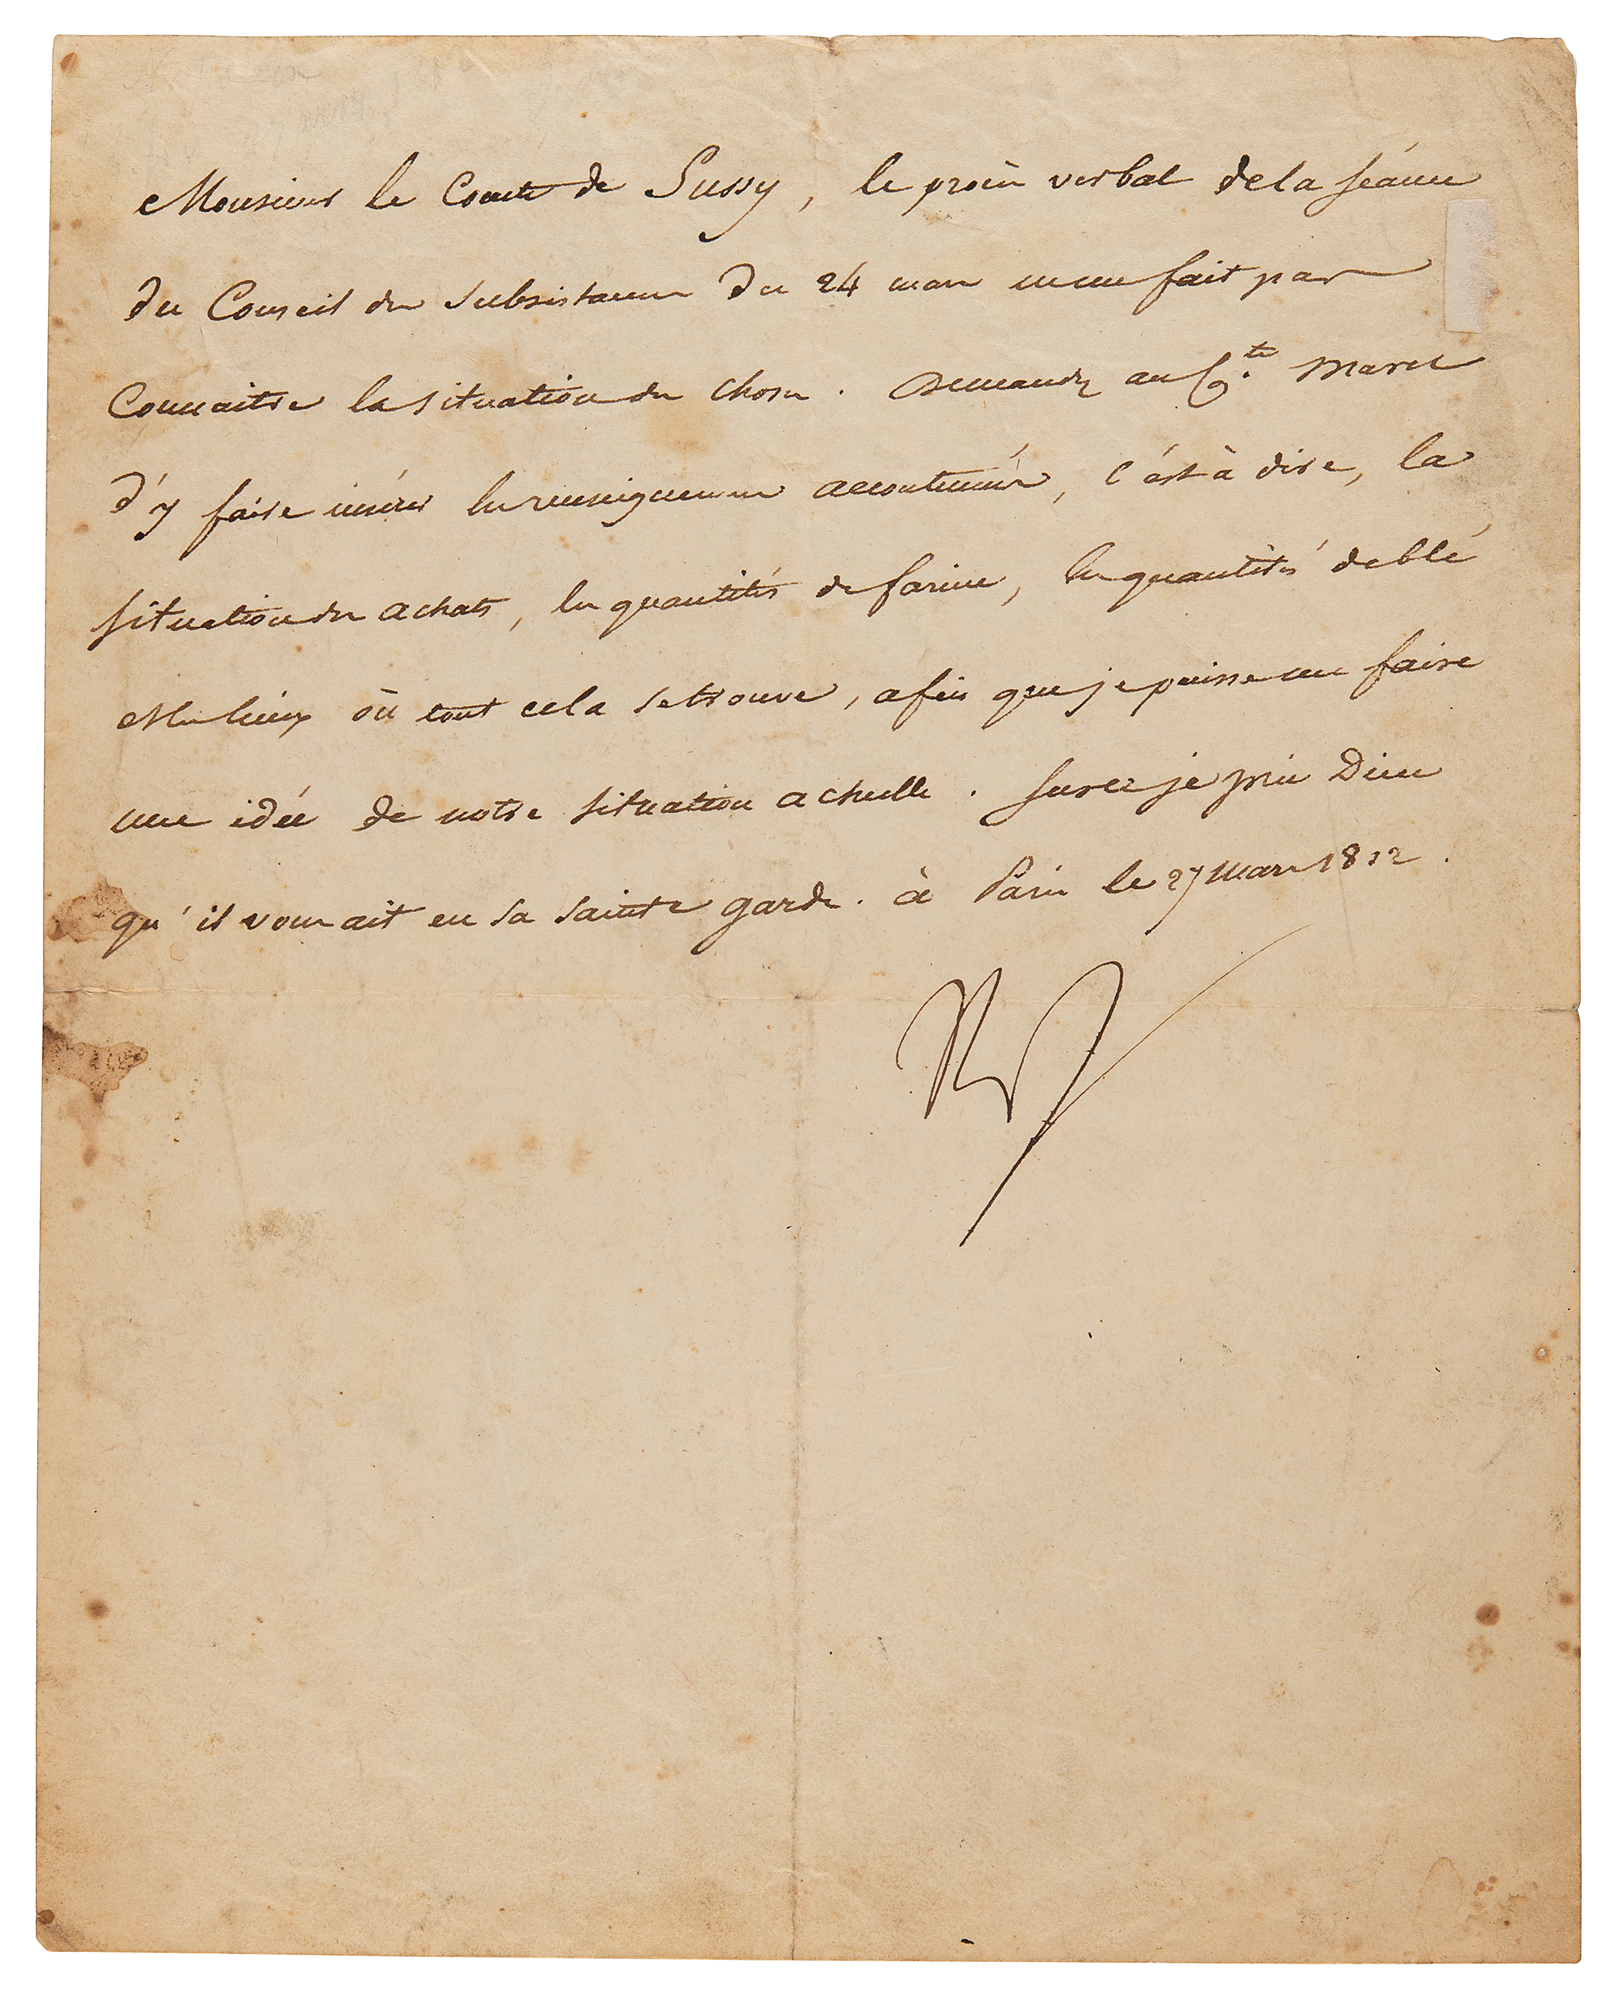 Monsieur le Comte de Sussy, le procès verbal de la séance
du Conseil des subsistances du 24 mars ne me fait pas
connaitre la situation des choses. Demandez au Cte. Maret
d'y faire insérer les renseignemens accoutumés, c'est à dire, la
situation des achats, les quantités de farine, les quantités de blé
et les lieux où tout cela se trouve, afin que je puisse me faire
une idée de notre situation actuelle. Sur ce je prie Dieu
qu'il vous ait en sa sainte garde. à Paris le 27 mars 1812.
Np